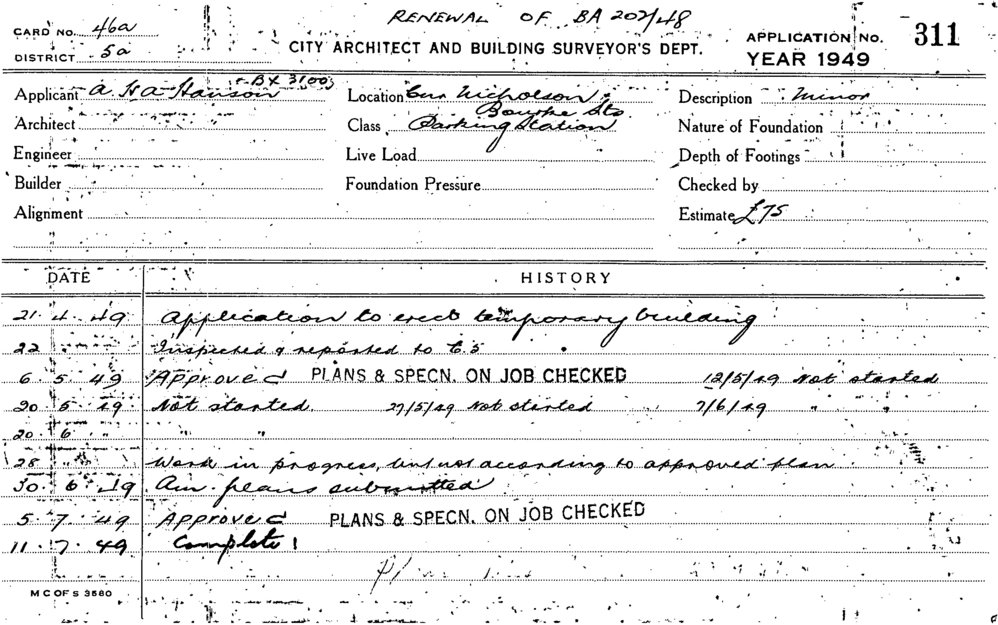 RENEWAL OF BA 202/48
CARD No. 46a
DISTRICT 5a
CITY ARCHITECT AND BUILDING SURVEYOR'S DEPT.
APPLICATION No. 311
YEAR 1949
Applicant A H A Hanson BX 3100 Location Cnr Nicholson Description Minor
Bourke Sts
Architect Class Parking Station Nature of Foundation
Engineer Live Load Depth of Footings
Builder Foundation Pressure Checked by
Alignment Estimate £75
DATE HISTORY
21 4 49 Application to erect temporary building
22 " " Inspected & reported to C.S
6 5 49 Approved PLANS & SPECN. ON JOB CHECKED 12/5/49 Not started
20 5 49 Not started. 27/5/49 Not started 7/6/49 " "
20 6 " " "
28 " " Work in progress, but not according to approved plan.
30 6 49 Am. plans submitted
5 7 49 Approved PLANS & SPECN. ON JOB CHECKED
11 7 49 Complete!
M C OF S 3580